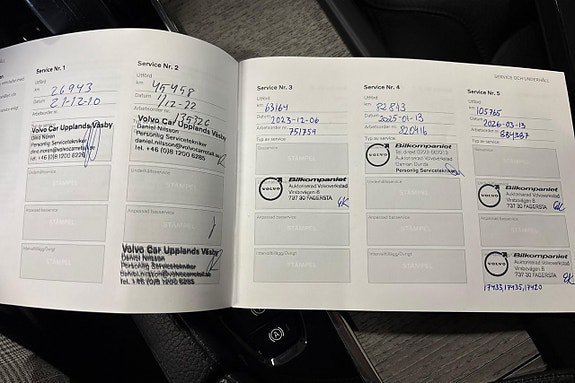 Service Nr. 1
Utförd
km 26943
Datum 21-12-10
Arbetsorder nr.
Volvo Car Upplands Väsby
Personlig Servicetekniker
Tel. +46 (0)8 1200 6226
Anpassad basservice
Intervalltillägg/Övrigt
Service Nr. 2
Utförd
km 45458
Datum 1/12-22
Arbetsorder nr. 13520
Volvo Car Upplands Väsby
Daniel Nilsson
Personlig Servicetekniker
daniel.nilsson@volvocarretail.se
Tel. +46 (0)8 1200 6285
Underhållsservice
Anpassad basservice
Volvo Car Upplands Väsby
Daniel Nilsson
Personlig Servicetekniker
daniel.nilsson@volvocarretail.se
Tel. +46 (0)8 1200 6285
SERVICE OCH UNDERHÅLL
Service Nr. 3
Utförd
km 63164
Datum 2023-12-06
Arbetsorder nr. 751759
Typ av service
Basservice
STÄMPEL
Underhållsservice
VOLVO
Bilkompaniet
Auktoriserad Volvoverkstad
Vinstavägen 8
737 30 FAGERSTA
Anpassad basservice
STÄMPEL
Intervalltillägg/Övrigt
STÄMPEL
Service Nr. 4
Utförd
km 82843
Datum 2025-04-13
Arbetsorder nr. 820416
Typ av service
VOLVO
Bilkompaniet
Auktoriserad Volvoverkstad
Personlig Servicetekniker
Underhållsservice
STÄMPEL
Anpassad basservice
STÄMPEL
Intervalltillägg/Övrigt
STÄMPEL
Service Nr. 5
Utförd
km 105765
Datum 2026-03-13
Arbetsorder nr. 884387
Typ av service
Basservice
STÄMPEL
Underhållsservice
VOLVO
Bilkompaniet
Auktoriserad Volvoverkstad
Vinstavägen 8
737 30 FAGERSTA
Anpassad basservice
STÄMPEL
Intervalltillägg/Övrigt
VOLVO
Bilkompaniet
Auktoriserad Volvoverkstad
Vinstavägen 8
737 30 FAGERSTA
17433,17435,17420